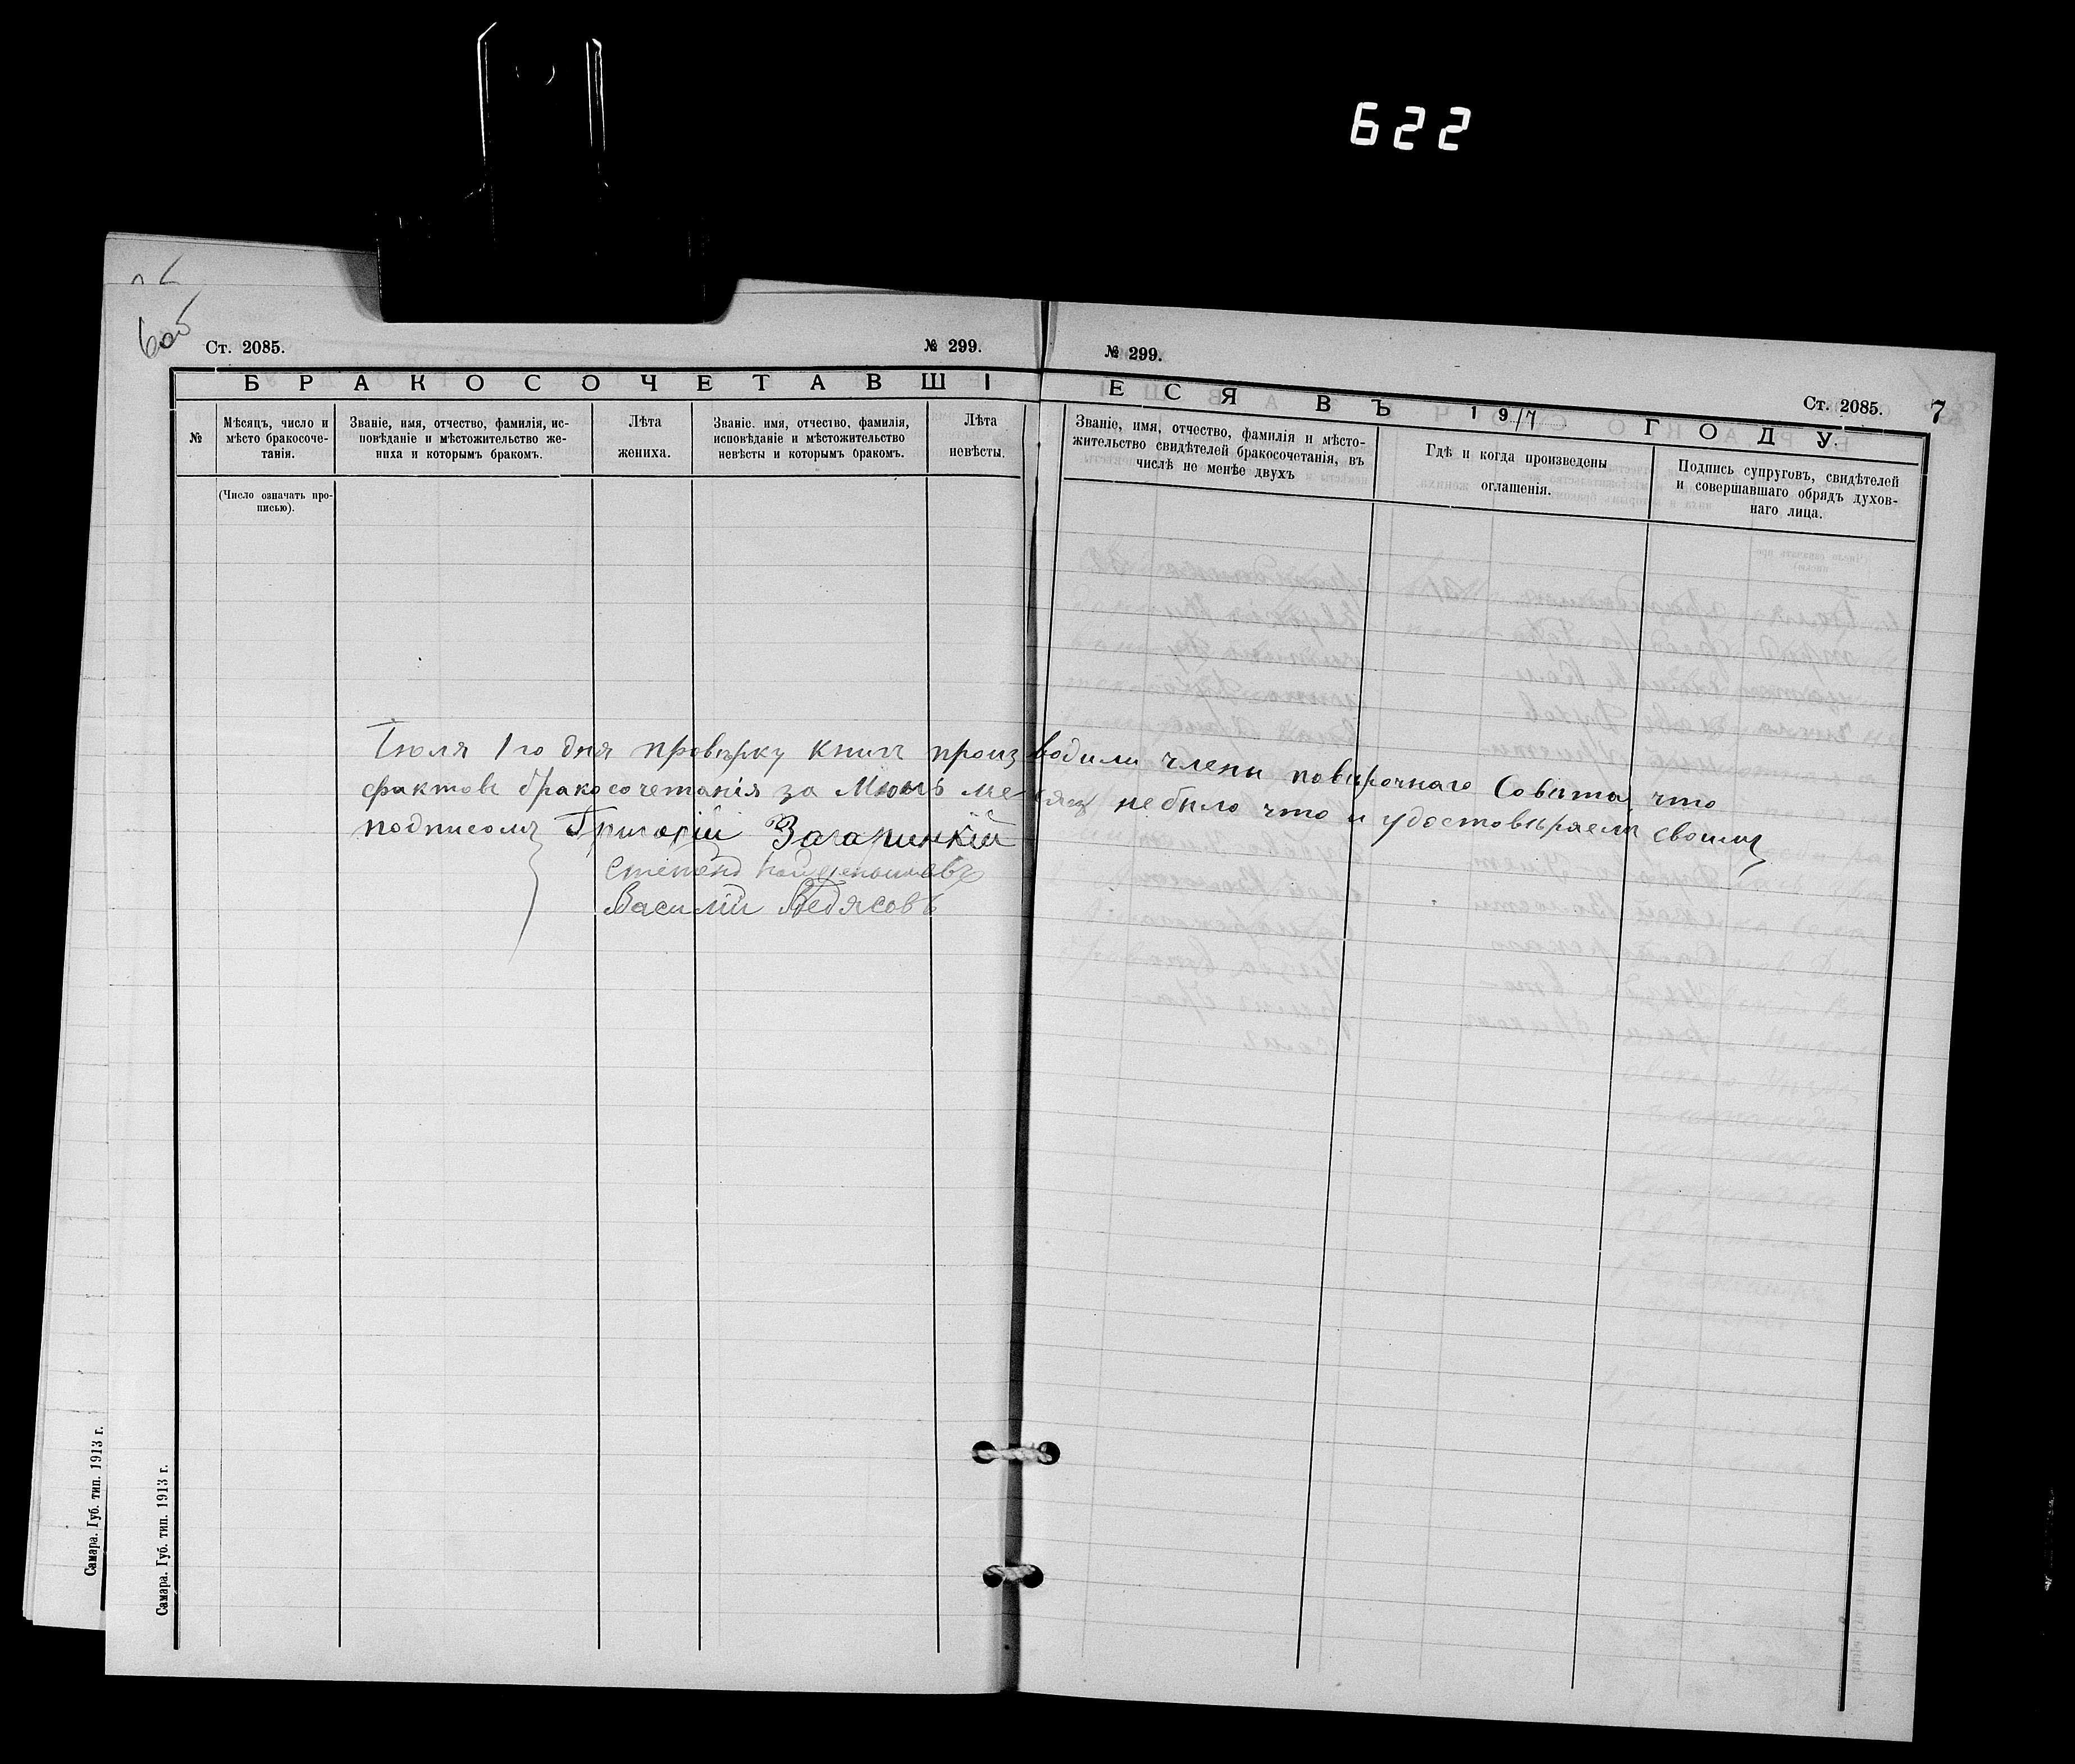 622
6об
Ст. 2085.
№ 299.
№ 299.
Ст. 2085.
7
БРАКОСОЧЕТАВШІЕСЯ ВЪ 1917 ГОДУ.
№
Мѣсяцъ, число и
мѣсто бракосоче-
танія.
(Число означать про-
писью).
Званіе, имя, отчество, фамилія, ис-
повѣданіе и мѣстожительство же-
ниха и которымъ бракомъ.
Лѣта
жениха.
Званіе. имя, отчество, фамилія,
исповѣданіе и мѣстожительство
невѣсты и которымъ бракомъ.
Лѣта
невѣсты.
Званіе, имя, отчество, фамилія и мѣсто-
жительство свидѣтелей бракосочетанія, въ
числѣ не менѣе двухъ
Гдѣ и когда произведены
оглашенія.
Подпись супруговъ, свидѣтелей
и совершавшаго обрядъ духов-
наго лица.
Іюля 1го дня провѣрку книгъ производили члены повѣрочнаго Совѣта, что
фактовъ бракосочетанія за Июнь месяцъ небыло что и удостовѣряемъ своимъ
подписомъ Григорій
Степанъ
Василій Ведясовъ
Самара. Губ. тип. 1913 г.
Самара. Губ. тип. 1913 г.